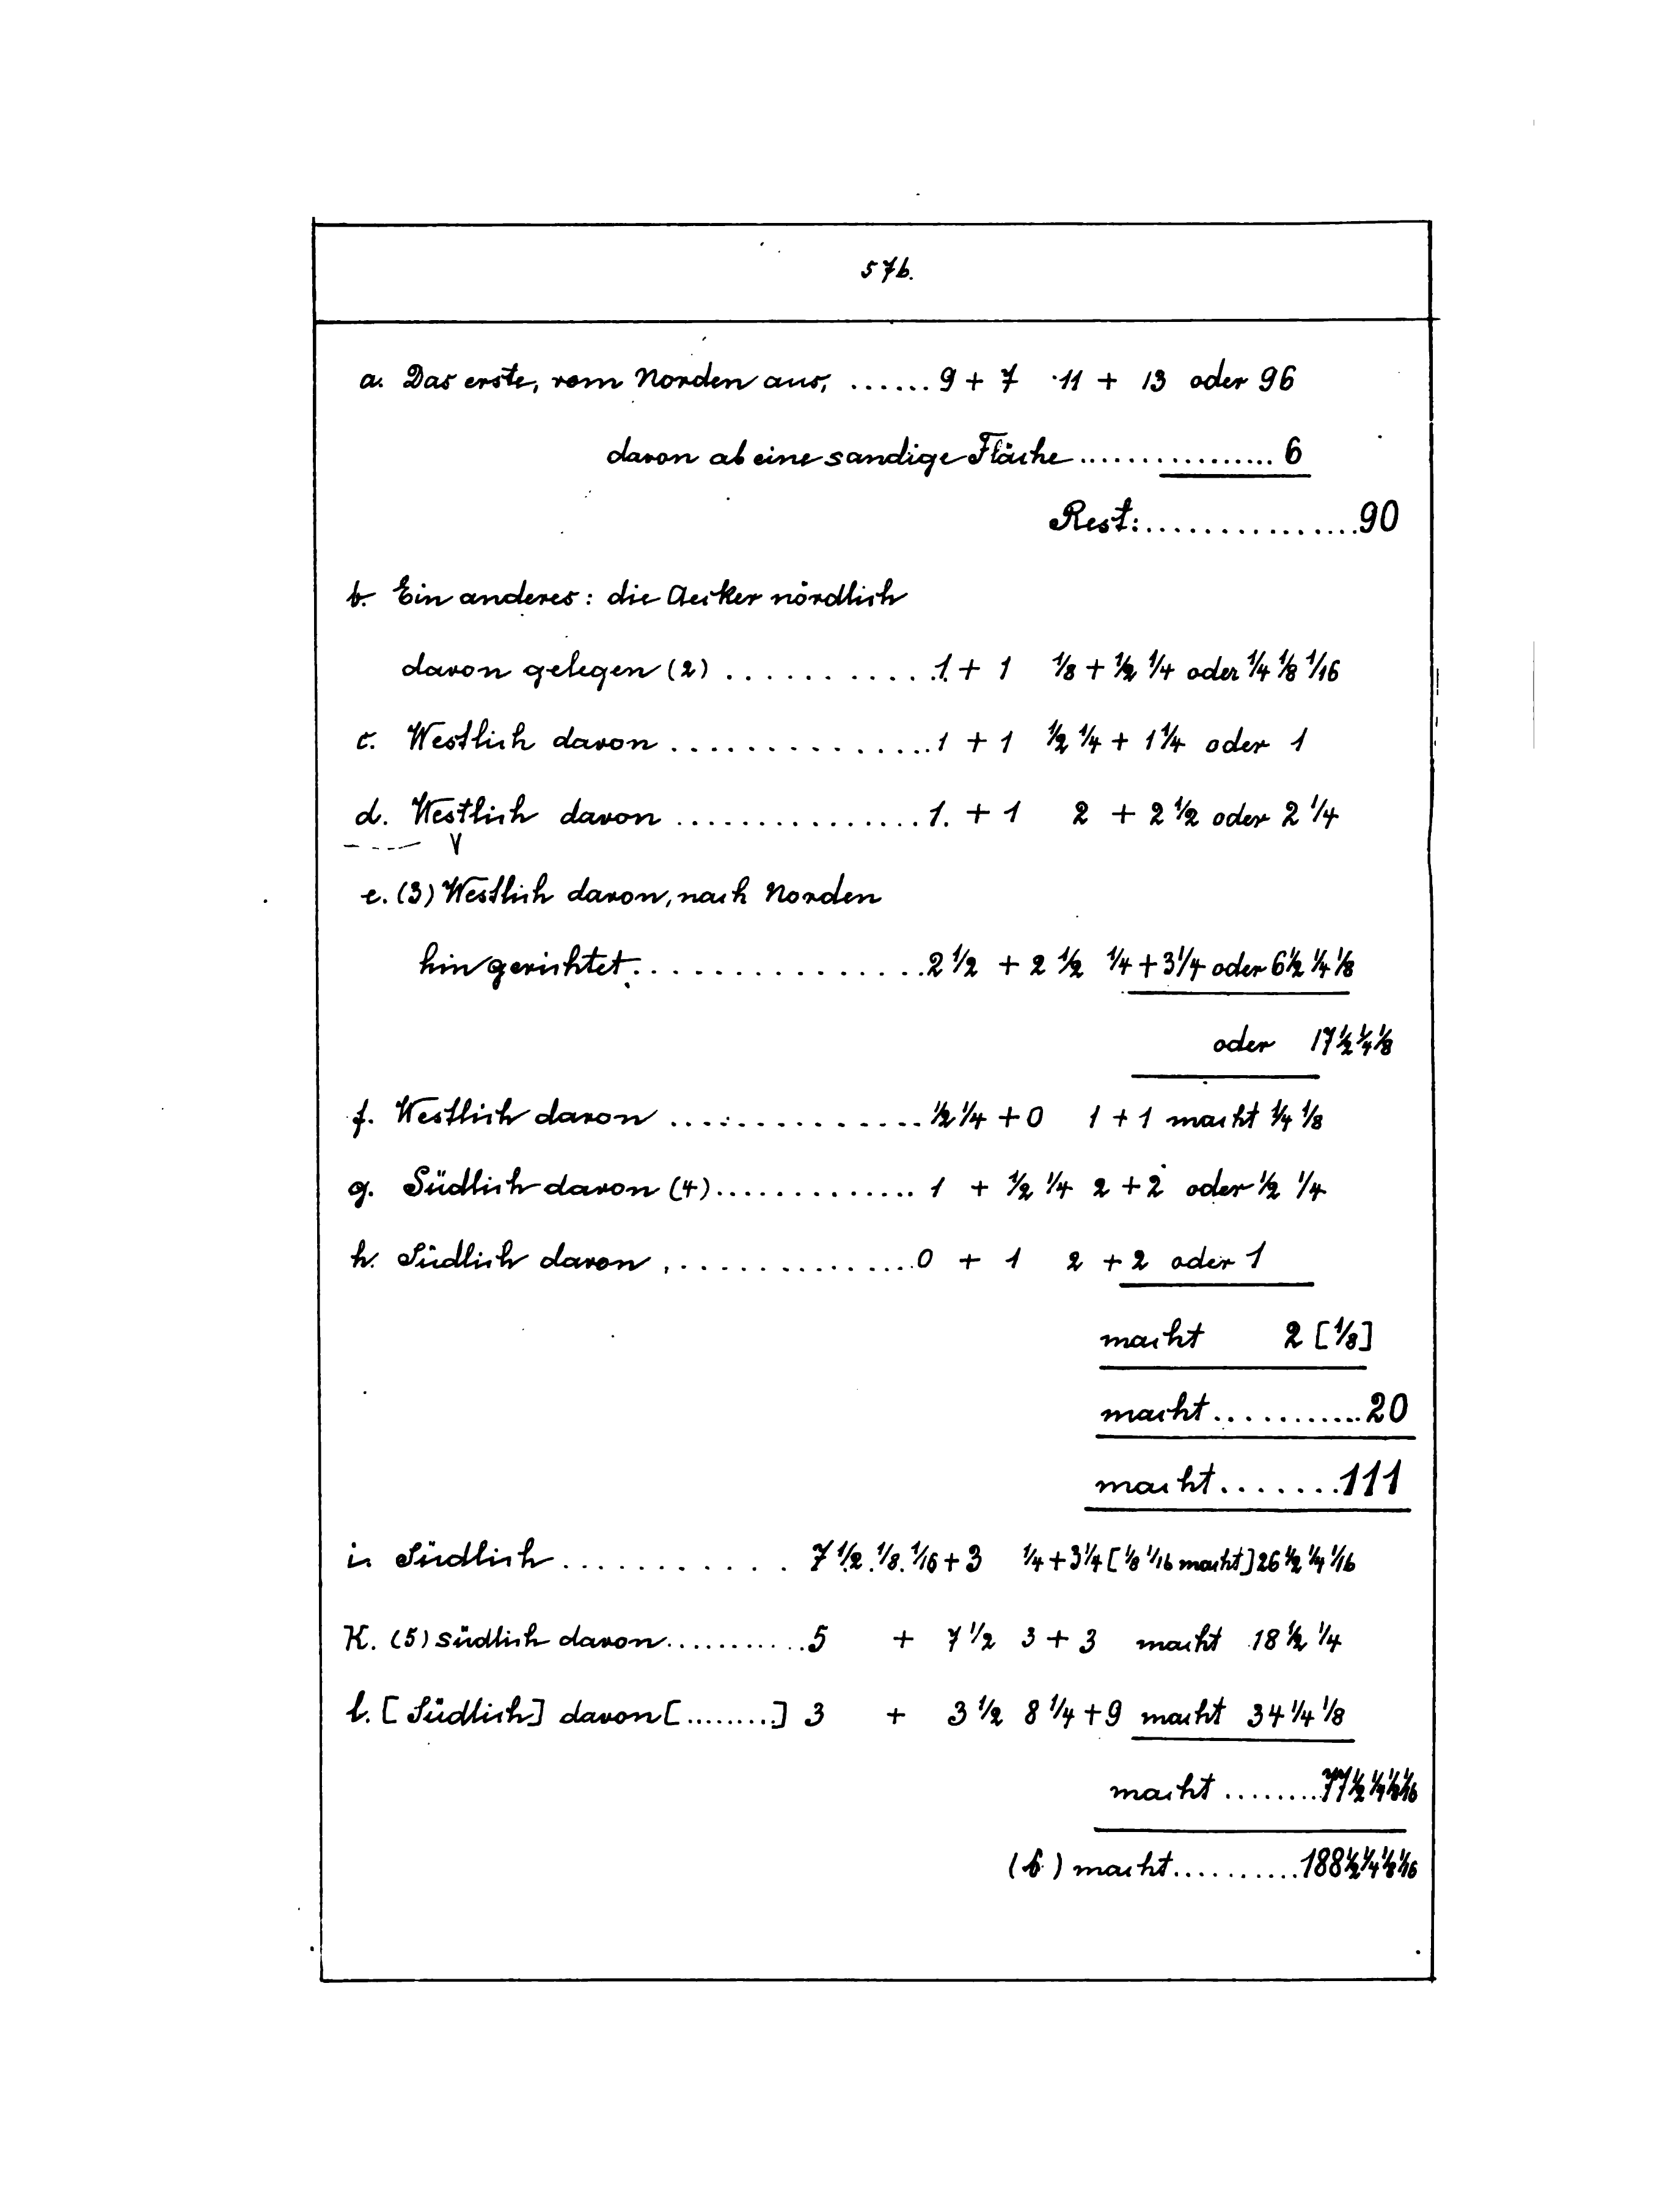 57b.
a. Das erste, vom Norden aus, ...... 9 + 7 11 + 13 oder 96
davon ab eine sandige Fläche ................ 6
Rest: ............... 90
b. Ein anderes: die Aecker nördlich
davon gelegen (2) ........... 1 + 1 1/8 + 1/2 1/4 oder 1/4 1/8 1/16
c. Westlich davon .............. 1 + 1 1/2 1/4 + 1 1/4 oder 1
d. Westlich davon ............... 1. + 1 2 + 2 1/2 oder 2 1/4
e. (3) Westlich davon, nach Norden
hin gerichtet ............... 2 1/2 + 2 1/2 1/4 + 3 1/4 oder 6 1/2 1/4 1/8
oder 17 1/2 1/4 1/8
f. Westlich davon .............. 1/2 1/4 + 0 1 + 1 macht 1/4 1/8
g. Südlich davon (4) .............. 1 + 1/2 1/4 2 + 2 oder 1/2 1/4
h. Südlich davon, ............... 0 + 1 2 + 2 oder 1
macht 2 [1/8]
macht ........... 20
macht ....... 111
i. Südlich ........... 7 1/2. 1/8. 1/16 + 3 1/4 + 3 1/4 [1/8 1/16 macht] 26 1/2 1/4 1/16
K. (5) südlich davon ........... 5 + 7 1/2 3 + 3 macht 18 1/2 1/4
l. [Südlich] davon [.........] 3 + 3 1/2 8 1/4 + 9 macht 34 1/4 1/8
macht ........ 77 1/2 1/4 1/8 1/16
(6) macht .......... 188 1/2 1/4 1/8 1/16